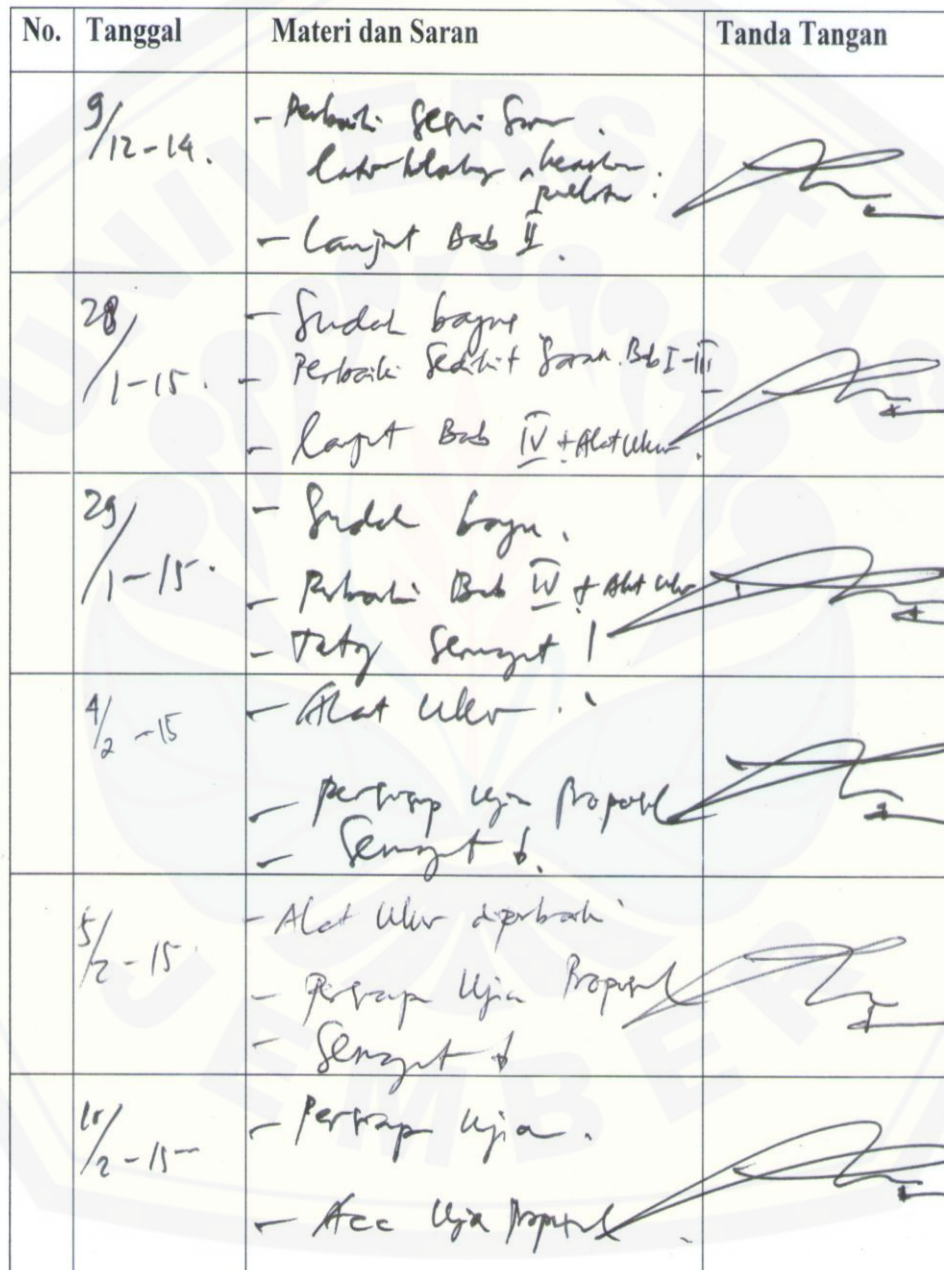 No. Tanggal Materi dan Saran Tanda Tangan
9/12-14. - Perbaiki sesuai saran.
latar blakang,
- Lanjut Bab II.
28/1-15. - Sudah bagus
- Perbaiki sedikit saran. Bab I-III
- lanjut Bab IV + Alat Ukur.
29/1-15. - Sudah bagus.
- Perbaiki Bab IV + Alat Ukur
- Tetap Semangat!
4/2-15 - Alat Ukur
- Persiap Ujian Proposal
- Semangat
5/2-15 - Alat Ukur diperbaiki
- Persiap Ujian Proposal
- Semangat
/2-15 - Persiap Ujian.
- Acc Ujian Proposal
UNIVERSITAS
JEMBER